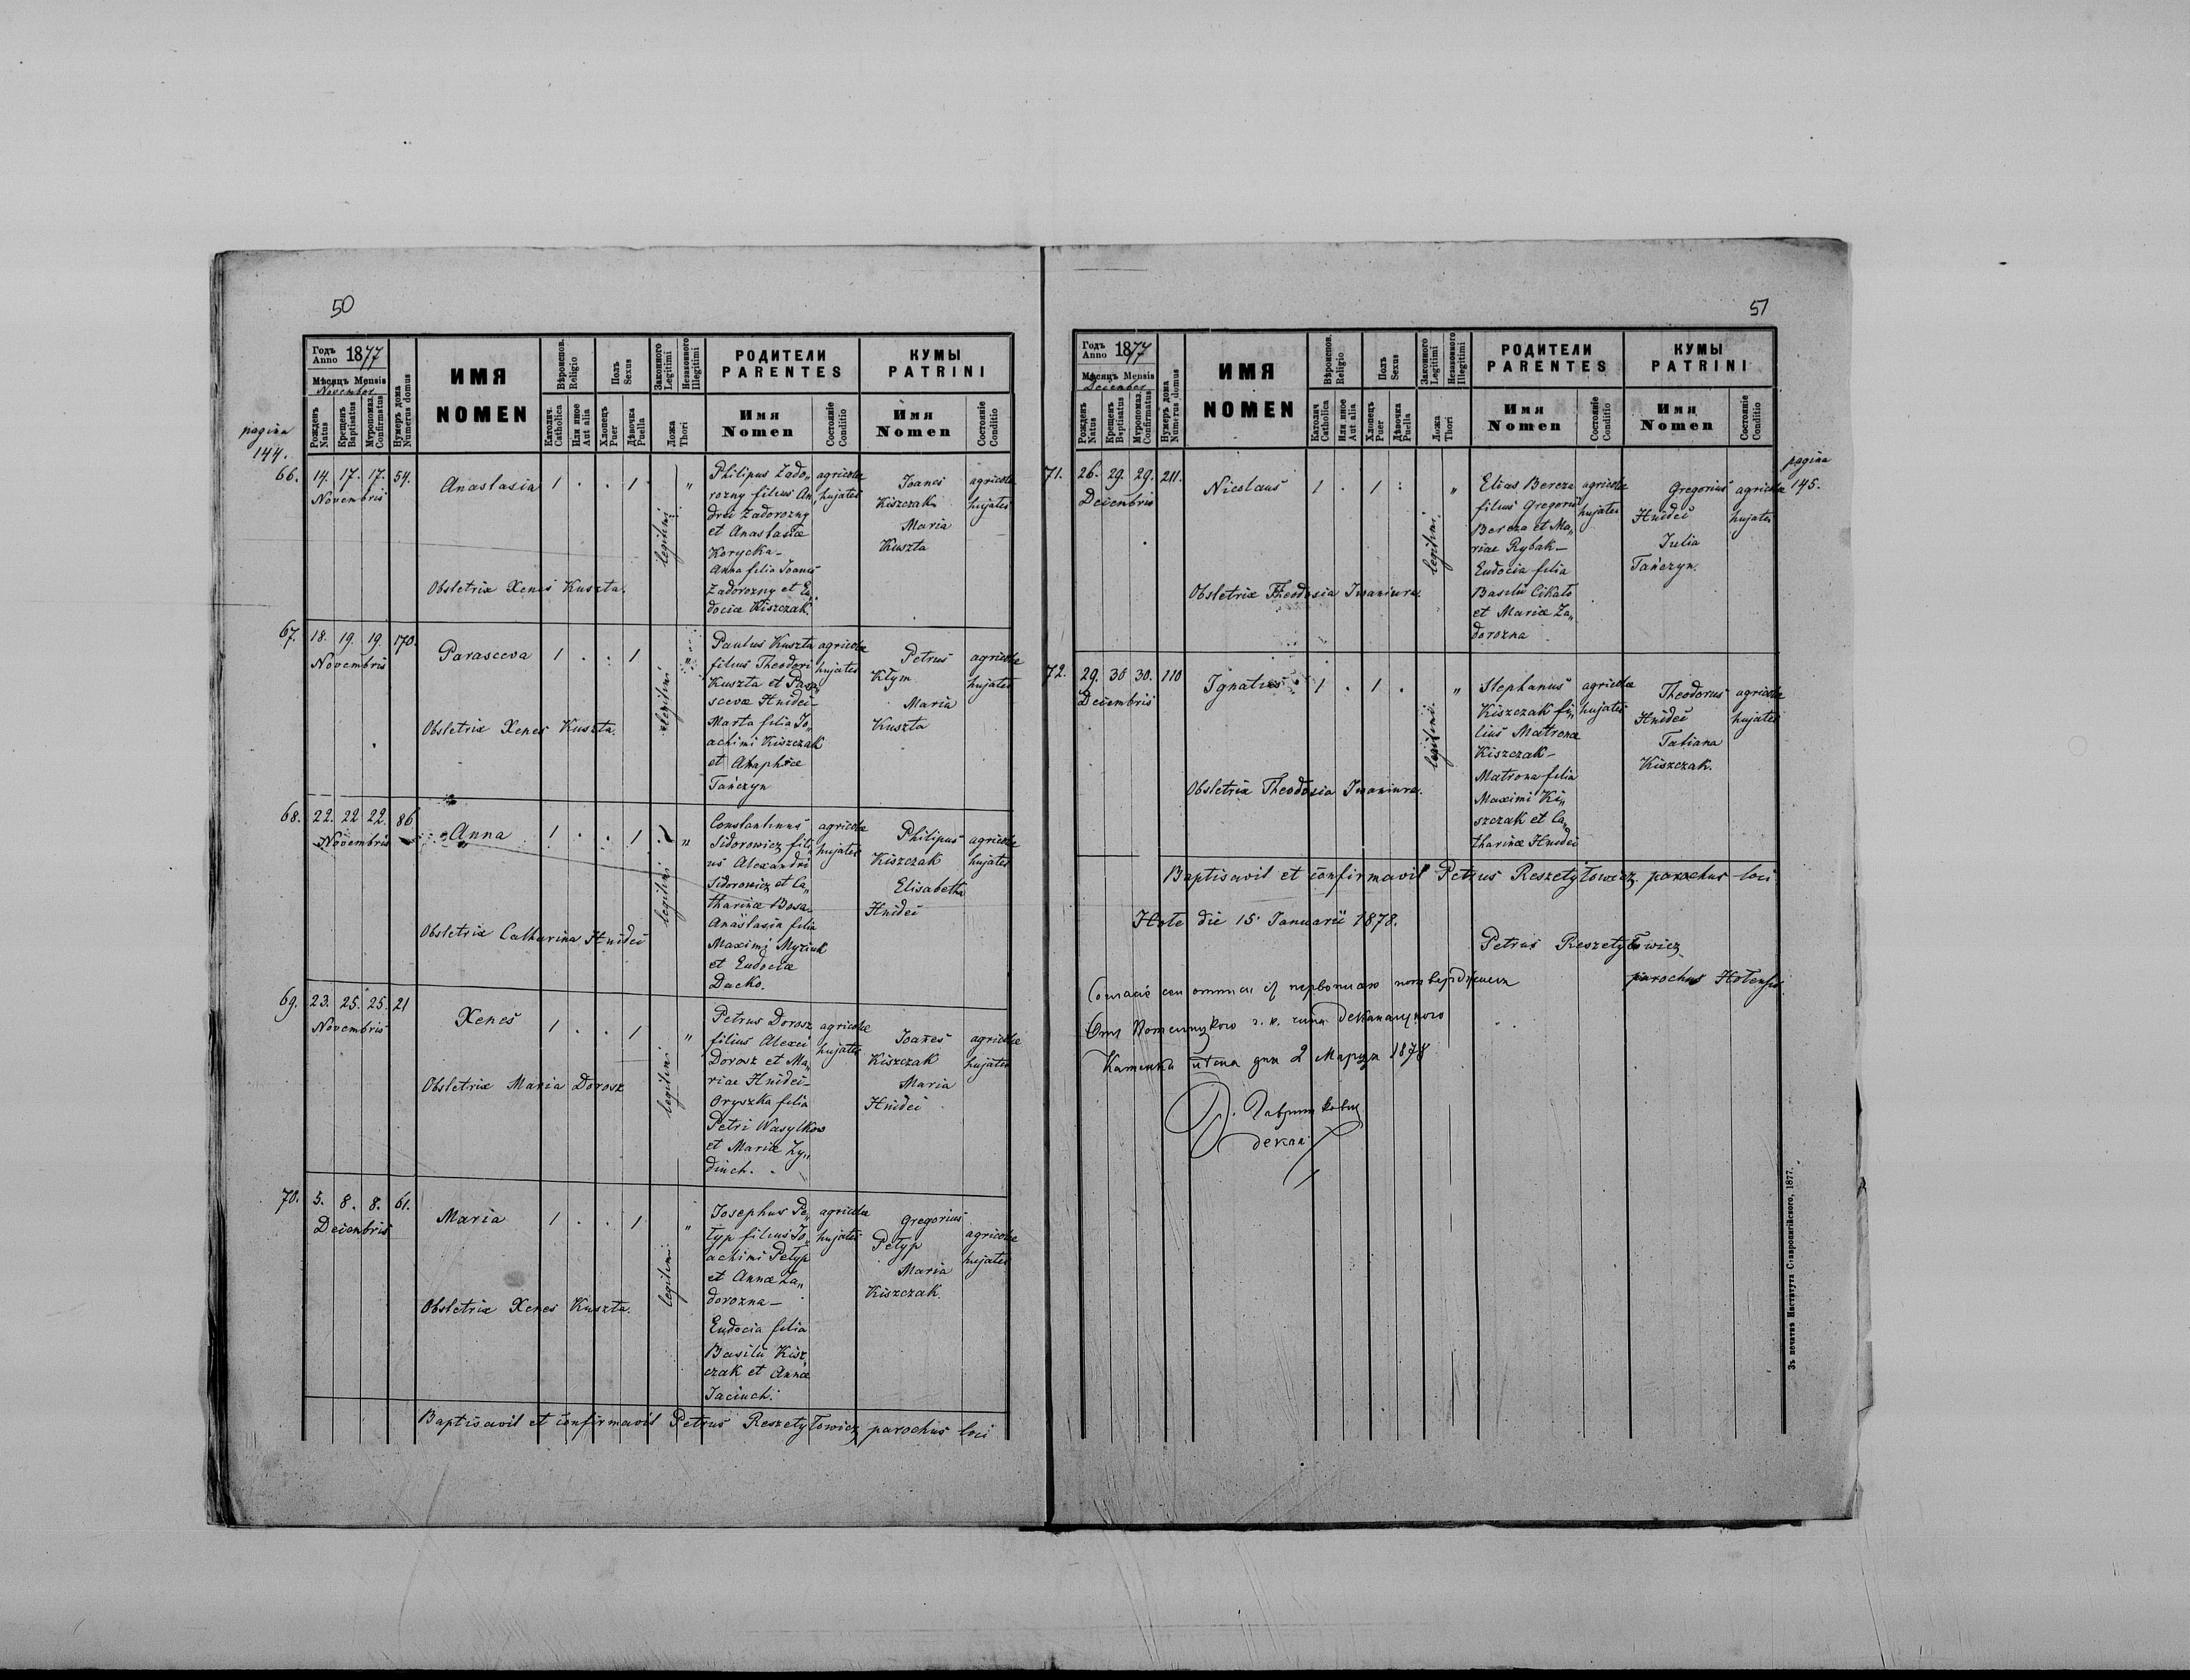 50
Годъ Anno 1877
Мѣсяцъ Mensis
November
Рожденъ Natus
Крещенъ Baptisatus
Мѵропомаз. Confirmatus
Нумеръ дома Numerus domus
ИМЯ
NOMEN
Вѣроисповѣд. Religio
Католич. Catholica
Или иное Aut alia
Полъ Sexus
Хлопецъ Puer
Дѣвочка Puella
Законного Legitimi
Незаконного Illegitimi
Ложа Thori
РОДИТЕЛИ
PARENTES
Имя
Nomen
Состояніе Conditio
КУМЫ
PATRINI
Имя
Nomen
Состояніе Conditio
pagina
144.
66. 14. 17. 17. 54.
Novembris
Anastasia 1 . . 1
legitimi "
Philipus Zado„
rozny filius An„
drei Zadorozny
et Anastasiæ
Korycka –
Anna filia Joanis
Zadorozny et Eu„
dociæ Kiszczak
agricolæ
hujates
Joanes
Kiszczak
Maria
Kuszta
agricolæ
hujates
Obstetrix Xenes Kuszta.
67. 18. 19. 19. 170.
Novembris
Parasceva 1 . . 1
legitimi "
Paulus Kuszta
filius Theodori
Kuszta et Para„
scevæ Hnidei –
Marta filia Jo„
achimi Kiszczak
et Ahaphiæ
Tańczyn
agricolæ
hujates
Petrus
Kłym
Maria
Kuszta
agricolæ
hujates
Obstetrix Xenes Kuszta.
68. 22. 22. 22. 86
Novembris
Anna 1 . . 1
legitimi "
Constantinus
Sidorowicz fili„
us Alexandri
Sidorowicz et Ca„
tharinæ Bosa –
Anastasia filia
Maximi Myziuk
et Eudociæ
Dacko.
agricolæ
hujates
Philipus
Kiszczak
Elisabetha
Hnidei
agricolæ
hujates
Obstetrix Catharina Hnidei
69. 23. 25. 25. 21
Novembris
Xenes 1 . . 1
legitimi "
Petrus Dorosz
filius Alexei
Dorosz et Ma„
riae Hnidei –
Oryszka filia
Petri Wasylkow
et Mariæ Zy„
dinch.
agricolæ
hujates
Joanes
Kiszczak
Maria
Hnidei
agricolæ
hujates
Obstetrix Maria Dorosz
70. 5. 8. 8. 61.
Decembris
Maria 1 . . 1
legitimi "
Josephus Pe„
typ filius Jo„
achimi Petyp
et Annæ Za„
dorozna –
Eudocia filia
Basilii Kisz„
czak et Annæ
Jaciuch.
agricolæ
hujates
Gregorius
Petyp
Maria
Kiszczak.
agricolæ
hujates
Obstetrix Xenes Kuszta.
Baptisavit et confirmavit Petrus Reszetyłowicz parochus loci
51
Годъ Anno 1877
Мѣсяцъ Mensis
December
Рожденъ Natus
Крещенъ Baptisatus
Мѵропомаз. Confirmatus
Нумеръ дома Numerus domus
ИМЯ
NOMEN
Вѣроисповѣд. Religio
Католич Catholica
Или иное Aut alia
Полъ Sexus
Хлопецъ Puer
Дѣвочка Puella
Законного Legitimi
Незаконного Illegitimi
Ложа Thori
РОДИТЕЛИ
PARENTES
Имя
Nomen
Состояніе Conditio
КУМЫ
PATRINI
Имя
Nomen
Состояніе Conditio
pagina
145.
71. 26. 29. 29. 211.
Decembris
Nicolaus 1 . 1 .
legitimi. "
Elias Bereza
filius Gregorii
Bereza et Ma„
riae Rybak –
Eudocia filia
Basilii Cikało
et Mariæ Za„
dorozna
agricolæ
hujates
Gregorius
Hnidei
Julia
Tańczyn.
agricolæ
hujates
Obstetrix Theodosia Iwaniura.
72. 29. 30 30. 110
Decembris
Ignatius 1 . 1 .
legitimi. "
Stephanus
Kiszczak fi„
lius Matronæ
Kiszczak –
Matrona filia
Maximi Ki„
szczak et Ca„
tharinæ Hnidei
agricolæ
hujates
Theodorus
Hnidei
Tatiana
Kiszczak.
agricolæ
hujates
Obstetrix Theodosia Iwaniura.
Baptisavit et confirmavit Petrus Reszetyłowicz parochus loci
Hołe die 15 Januarii 1878.
Petrus Reszetyłowicz
parochus Hołensis.
Каменка дня 2 Марца 1878
декан
Зъ печатнѣ Института Ставропигійского, 1877.